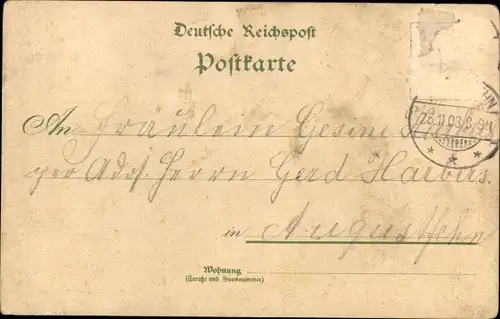 Deutsche Reichspost
Postkarte
An Fräulein Gesine
23.11.03.8-9N
per Adr. Herrn Gerd Harbers.
in Augustfehn
Wohnung
(Straße und Hausnummer)